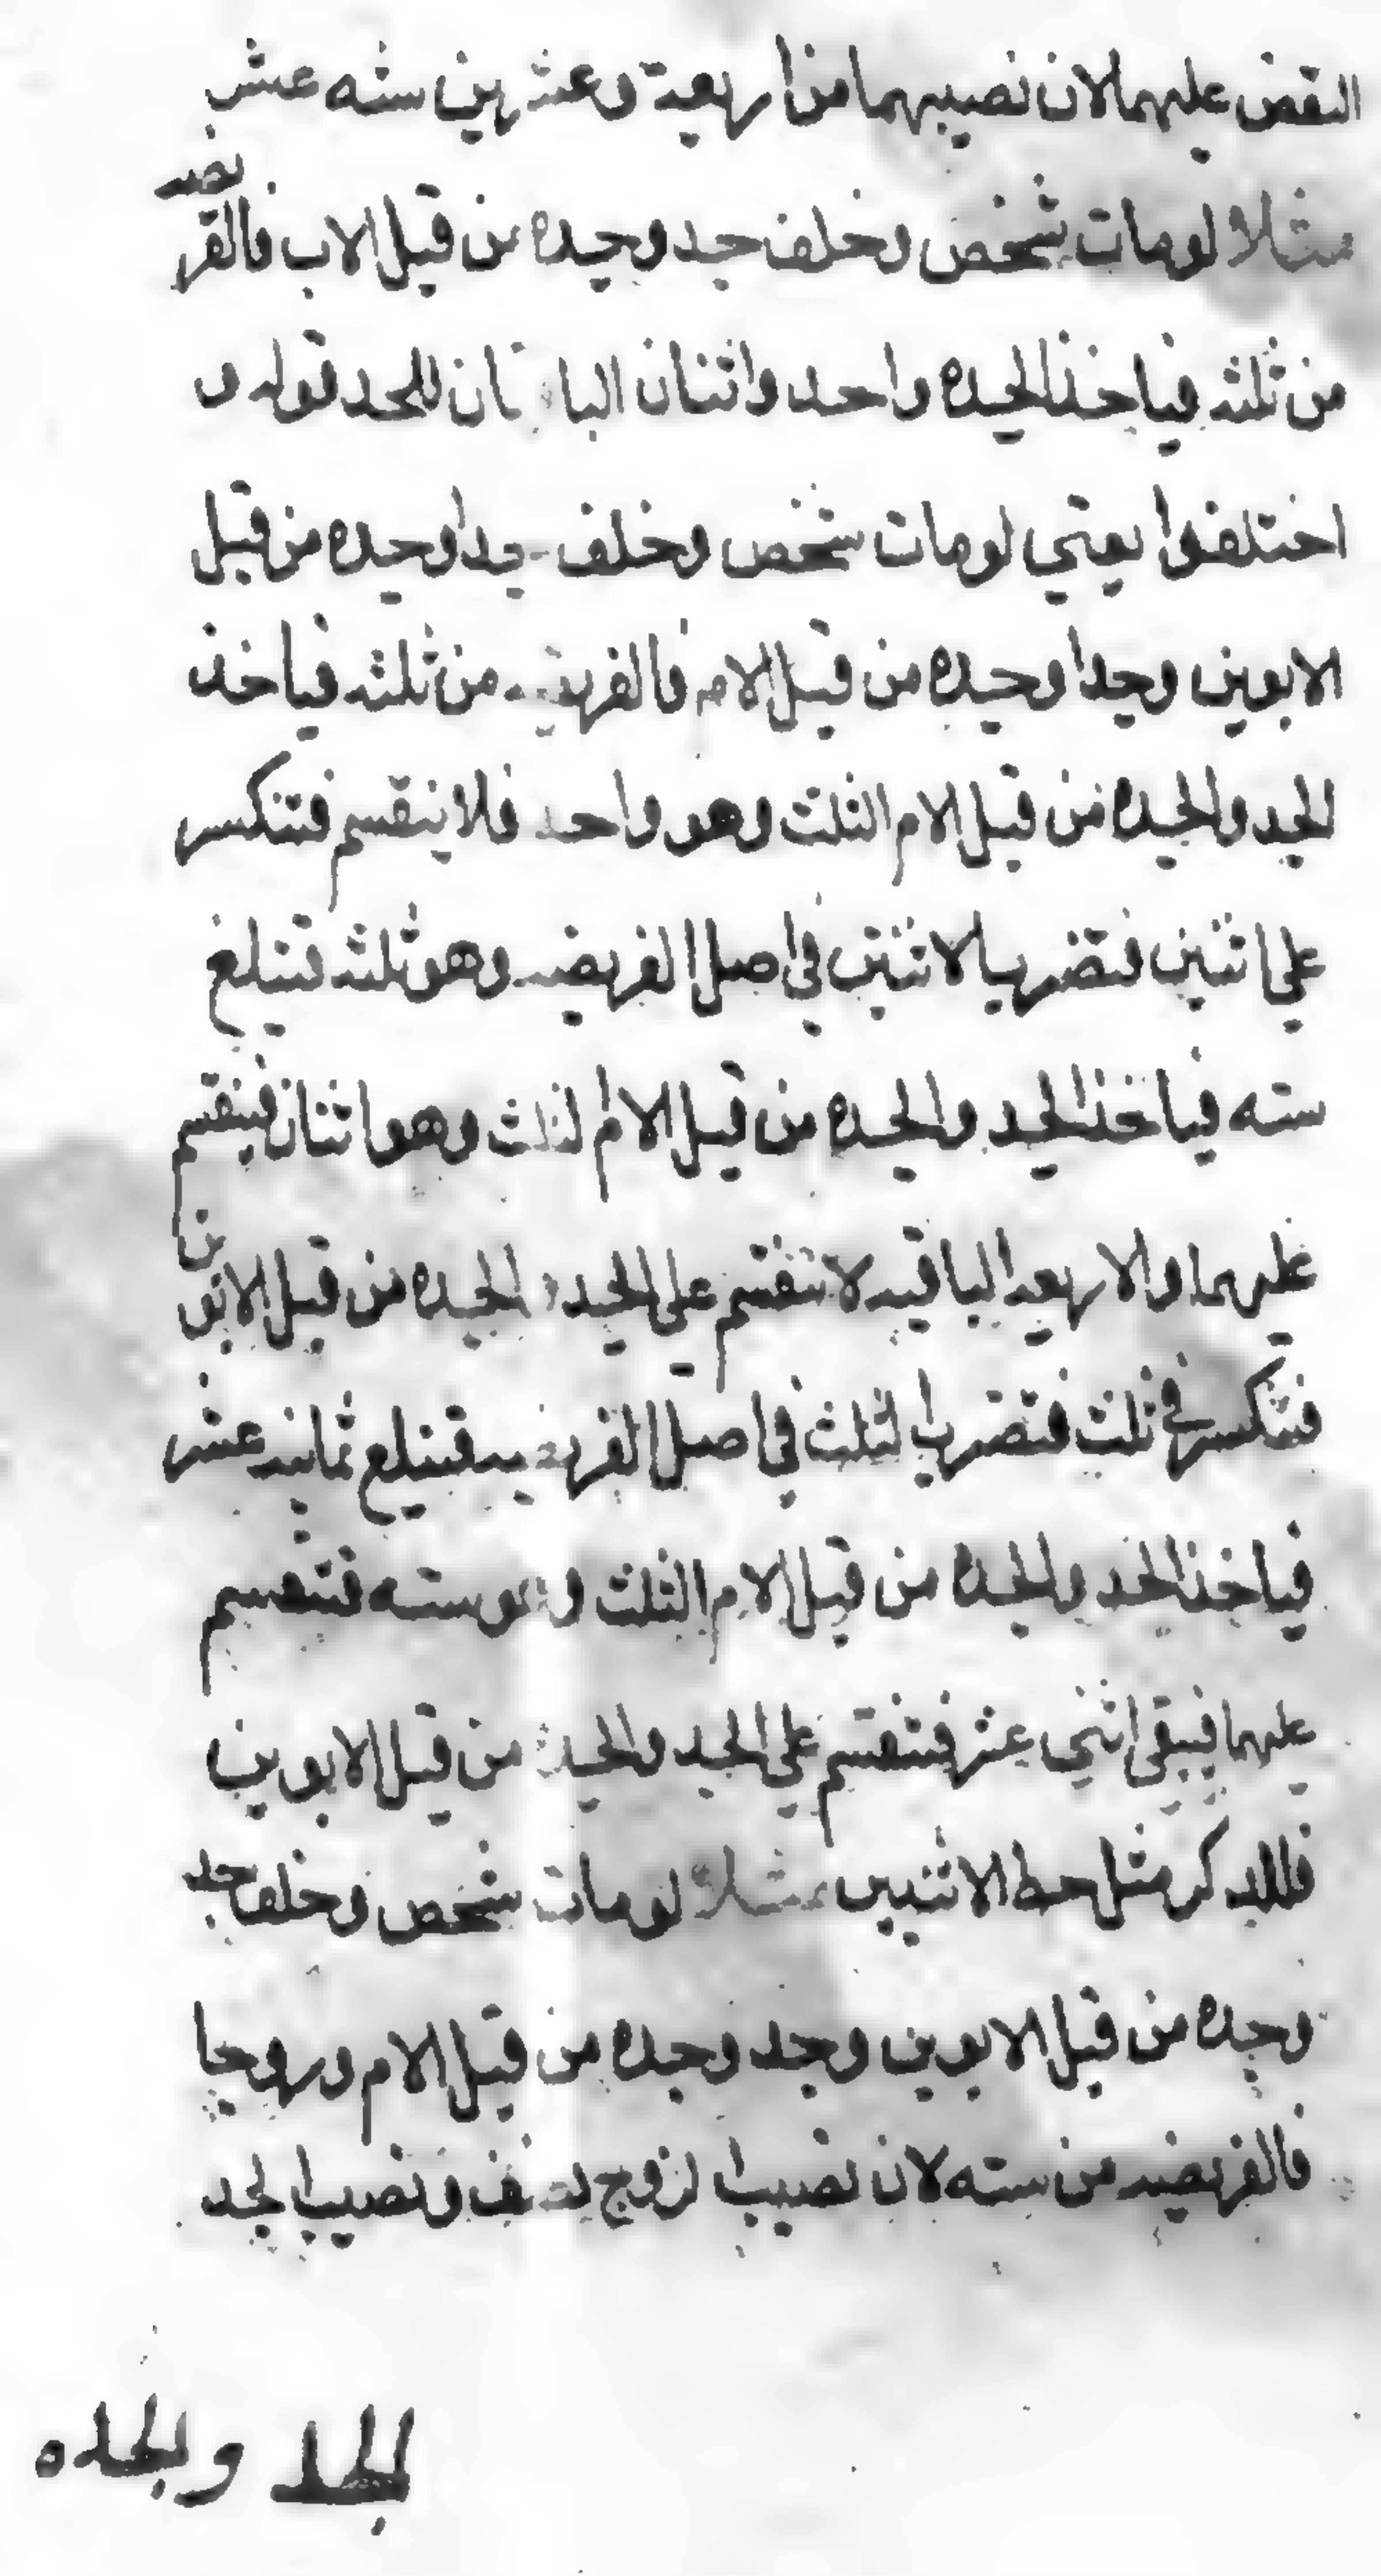 النقض عليهما لان نصيبهما من اربعة وعشرين سته عشر
مثلا لو مات شخص وخلف جد وجده من قبل الاب فالفريضه
من ثلثه فياخذ الجده واحد واثنان الباقيان للجد قوله و
اختلفوا يعني لو مات شخص وخلف جدا وجده من قبل
الابوين وجدا وجده من قبل الام فالفريضه من ثلثه فياخذ
الجد والجده من قبل الام الثلث وهو واحد فلا ينقسم فتنكسر
على اثنين فتضرب الاثنين في اصل الفريضه وهو ثلثه تبلغ
سته فياخذ الجد والجده من قبل الام الثلث وهو اثنان فينقسم
عليهما والاربعه الباقيه لا تنقسم على الجد والجده من قبل الابوين
فتنكسر في ثلث فتضرب الثلث في اصل الفريضه فتبلغ ثمانيه عشر
فياخذ الجد والجده من قبل الام الثلث وهو سته فتنقسم
عليهما فيبقى اثني عشر فتنقسم على الجد والجده من قبل الابوين
فللذكر مثل حظ الانثيين مثلا لو مات شخص وخلف جد
وجده من قبل الابوين وجد وجده من قبل الام وزوجا
فالفريضه من سته لان نصيب الزوج نصف ونصيب الجد
الجد والجده